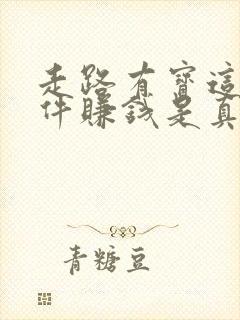 走路有寶這
件賺錢是真
青糖豆